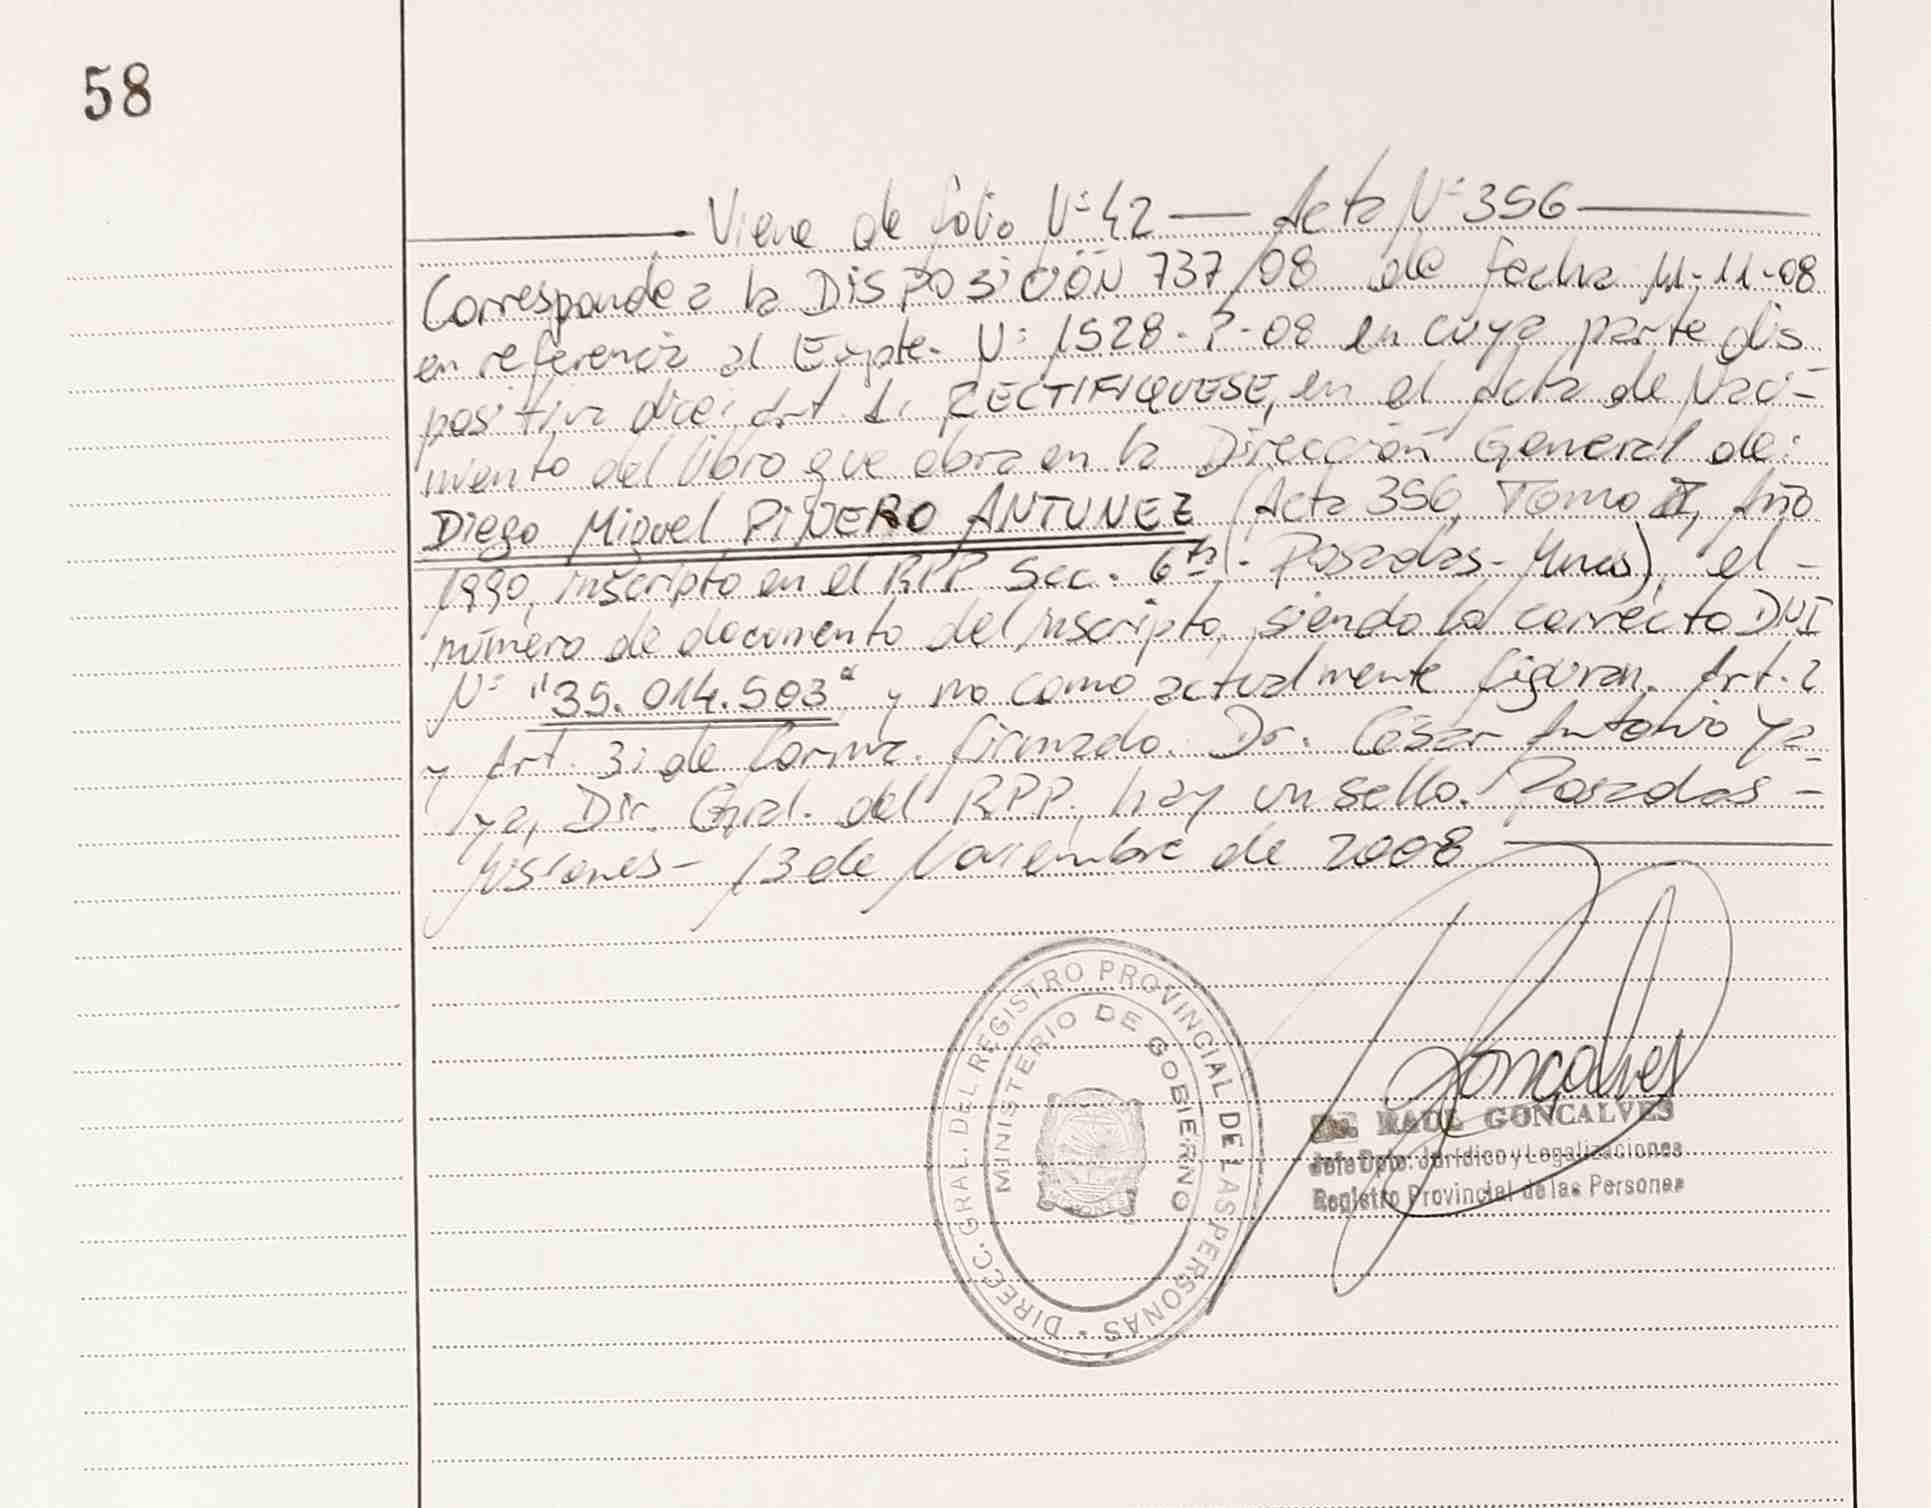 58
Viene de folio Nº 42 — Acta Nº 356
Corresponde a la DISPOSICIÓN 737/08 de fecha 11-11-08
en referencia al Expte. Nº 1528-P-08 en cuya parte dis
positiva dice: Art. 1: RECTIFIQUESE, en el Acta de Naci-
miento del libro que obra en la Dirección General de:
Diego Miguel PIÑERO ANTUNEZ (Acta 356, Tomo II, Año
1990, inscripto en el RPP Sec. 6ta. Posadas- Mnes), el -
número de documento del inscripto, siendo lo correcto DNI
Nº "35.014.503" y no como actualmente figuran. Art. 2
y Art. 3: de forma. firmado. Dr. César Antonio Ya-
ya, Dir. Gral. del RPP, hay un sello. Posadas -
Misiones - 13 de Noviembre de 2008
DIRECC. GRAL. DEL REGISTRO PROVINCIAL DE LAS PERSONAS -
MINISTERIO DE GOBIERNO
Goncalves
Dr. RAUL GONCALVES
Jefe Dpto. Jurídico y Legalizaciones
Registro Provincial de las Personas